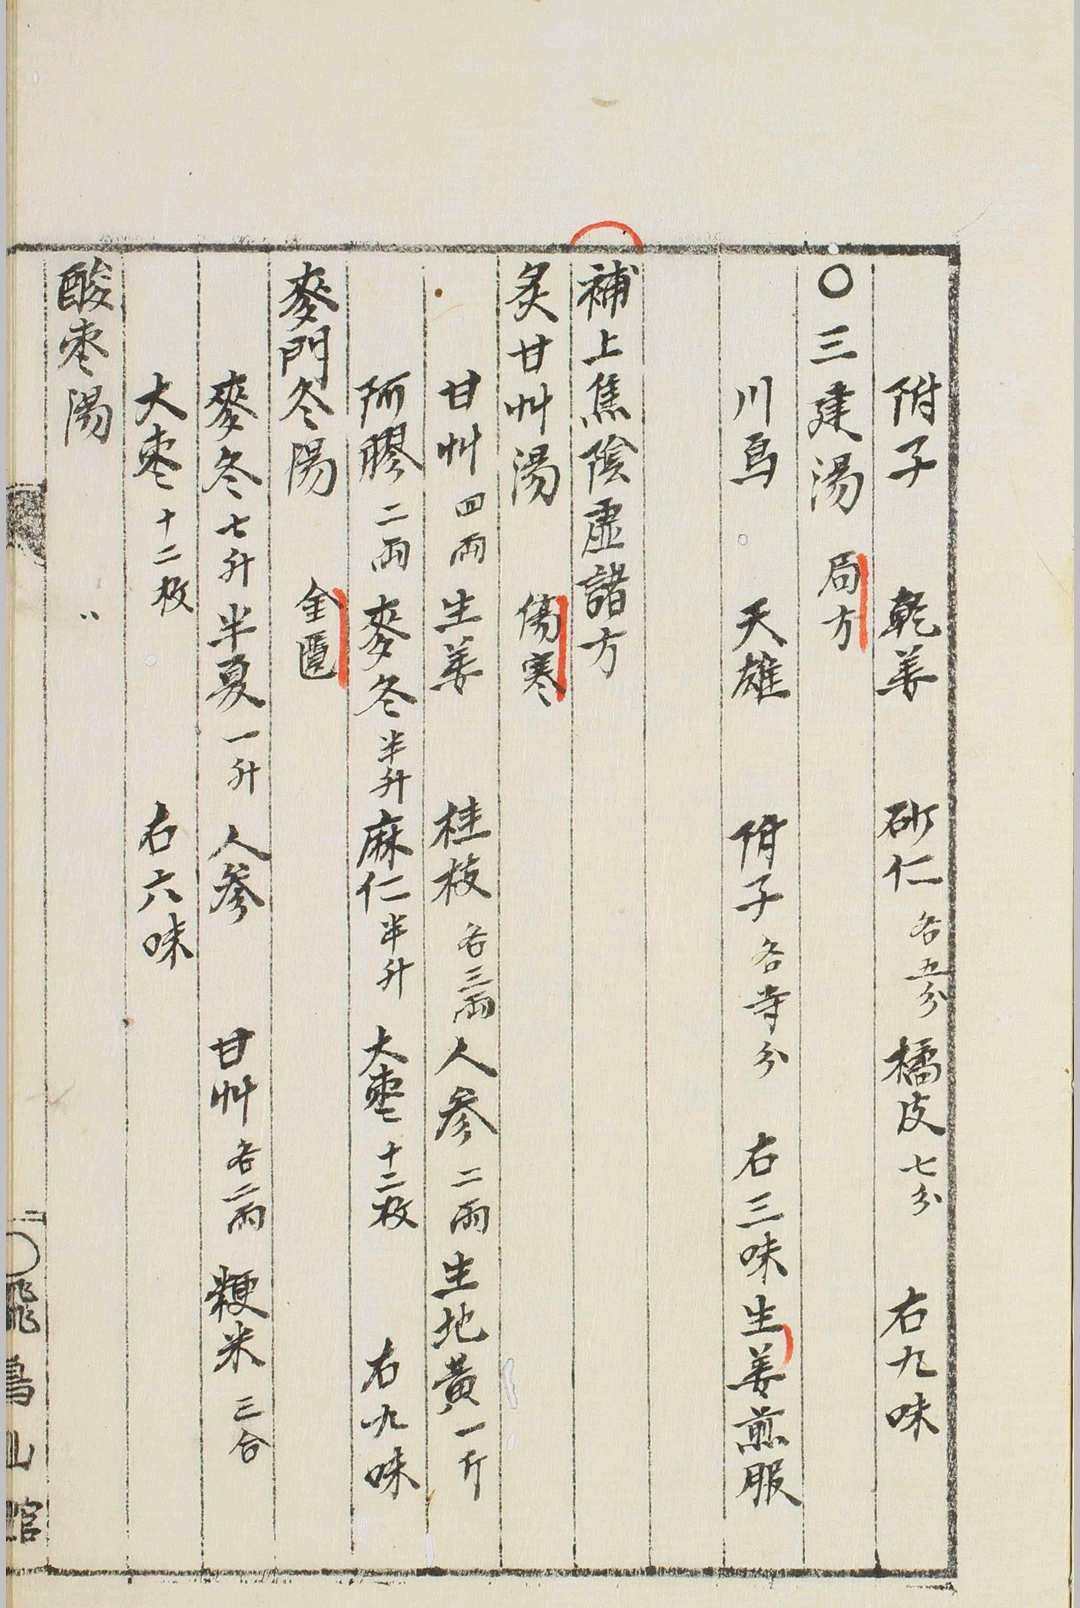 附子 乾姜 砂仁 各五分 橘皮 七分 右九味
〇三建湯 局方
川烏 天雄 附子 各等分 右三味生姜煎服
補上焦陰虛諸方
炙甘艸湯 傷寒
甘艸 四兩 生姜 桂枝 各三兩 人參 二兩 生地黃 一斤
阿膠 二兩 麥冬 半升 麻仁 半升 大棗 十二枚 右九味
麥門冬湯 金匱
麥冬 七升 半夏 一升 人參 甘艸 各二兩 粳米 三合
大棗 十二枚 右六味
酸棗湯 〃
飛鳥山館